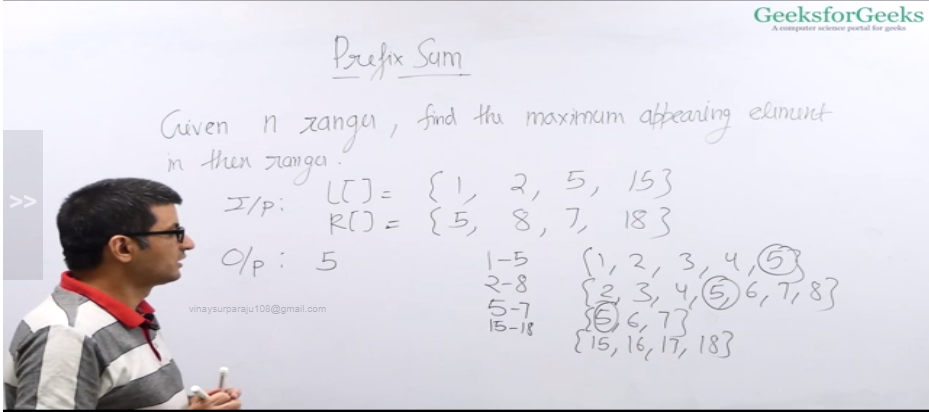 GeeksforGeeks
A computer science portal for geeks
Prefix Sum
Given n ranges, find the maximum appearing element
in these ranges.
I/p: L[] = {1, 2, 5, 15}
R[] = {5, 8, 7, 18}
O/p: 5
1-5 {1, 2, 3, 4, 5}
2-8 {2, 3, 4, 5, 6, 7, 8}
5-7 {5, 6, 7}
15-18 {15, 16, 17, 18}
>>
vinaysurparaju108@gmail.com